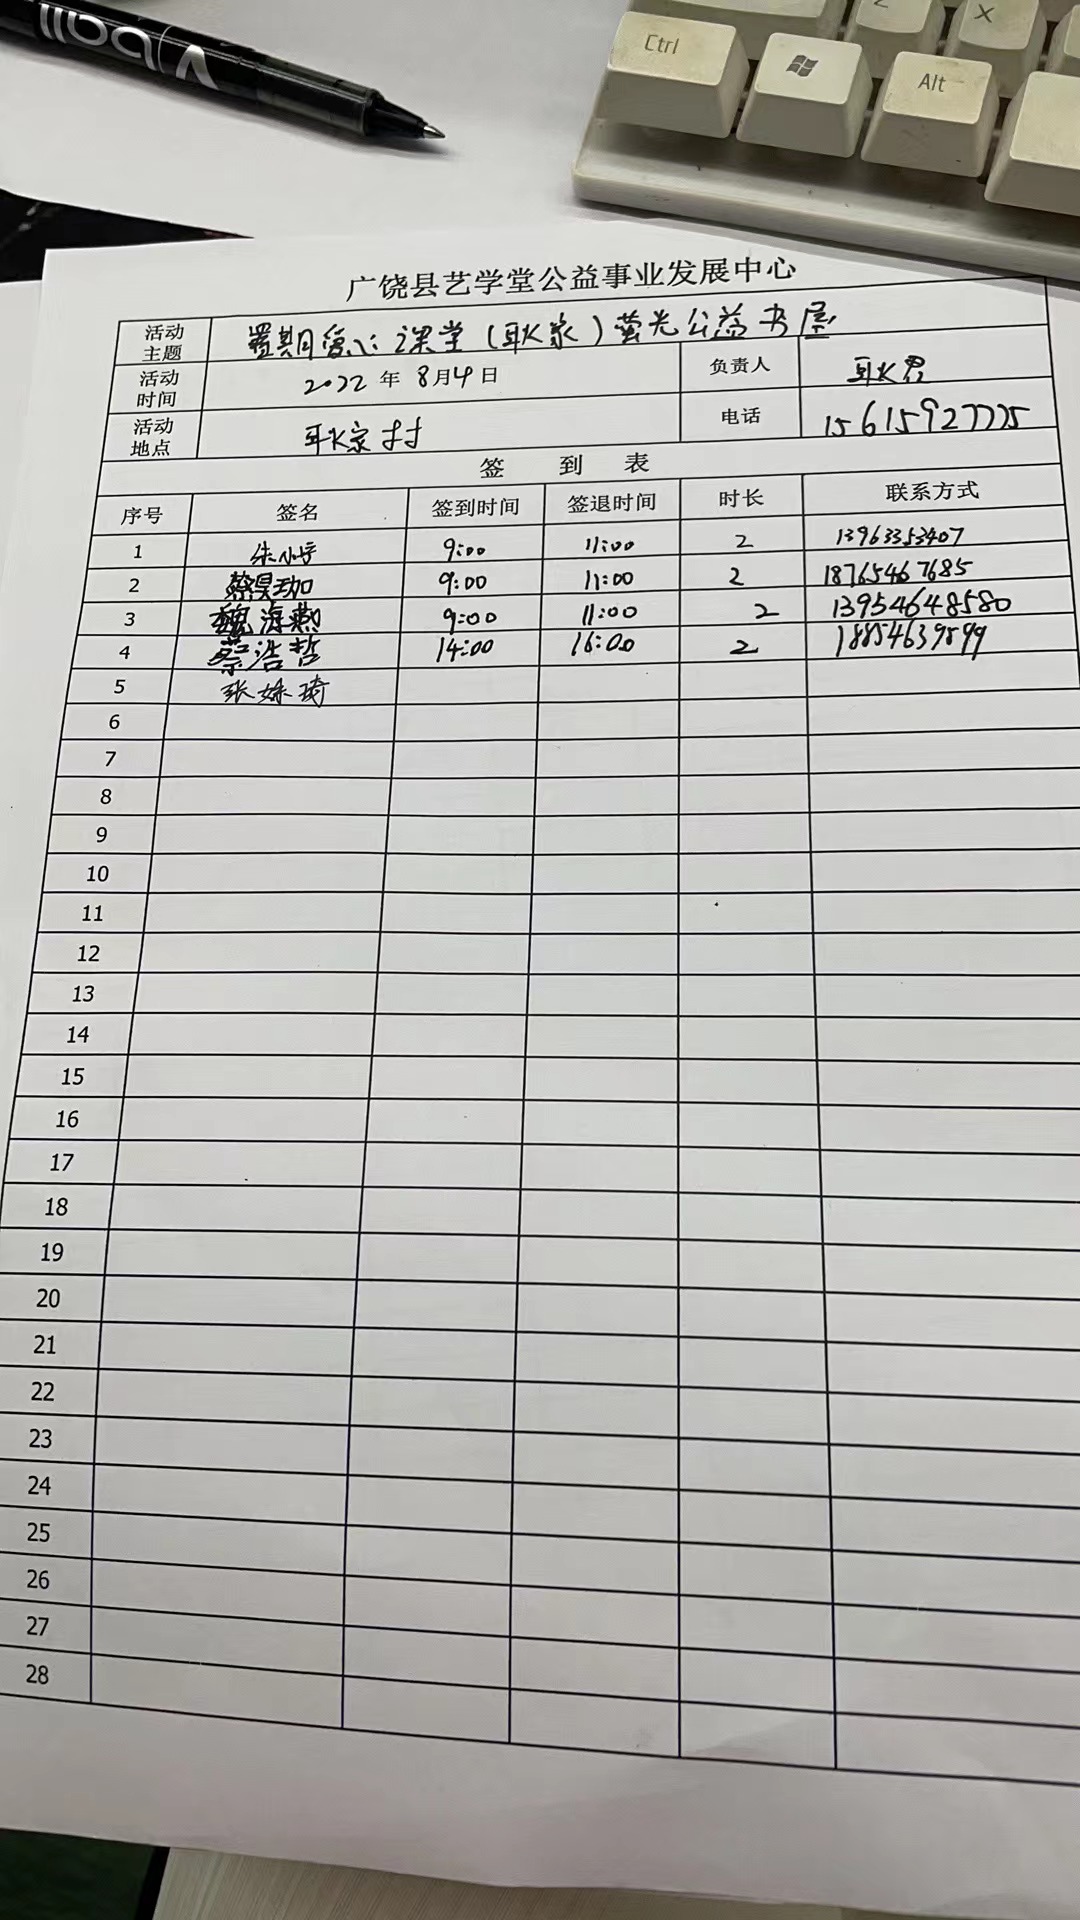 Ctrl
Z
X
Alt
广饶县艺学堂公益事业发展中心
活动主题 暑期爱心课堂（耿家）萤光公益书屋
活动时间 2022 年 8月4日 负责人 耿君
活动地点 耿家村 电话 15615927775
签 到 表
序号 签名 签到时间 签退时间 时长 联系方式
1 朱小宇 9:00 11:00 2 13963353407
2 蔡昊珈 9:00 11:00 2 18765467685
3 魏海燕 9:00 11:00 2 13954648580
4 蔡浩哲 14:00 16:00 2 18854639899
5 张姝琦
6
7
8
9
10
11
12
13
14
15
16
17
18
19
20
21
22
23
24
25
26
27
28